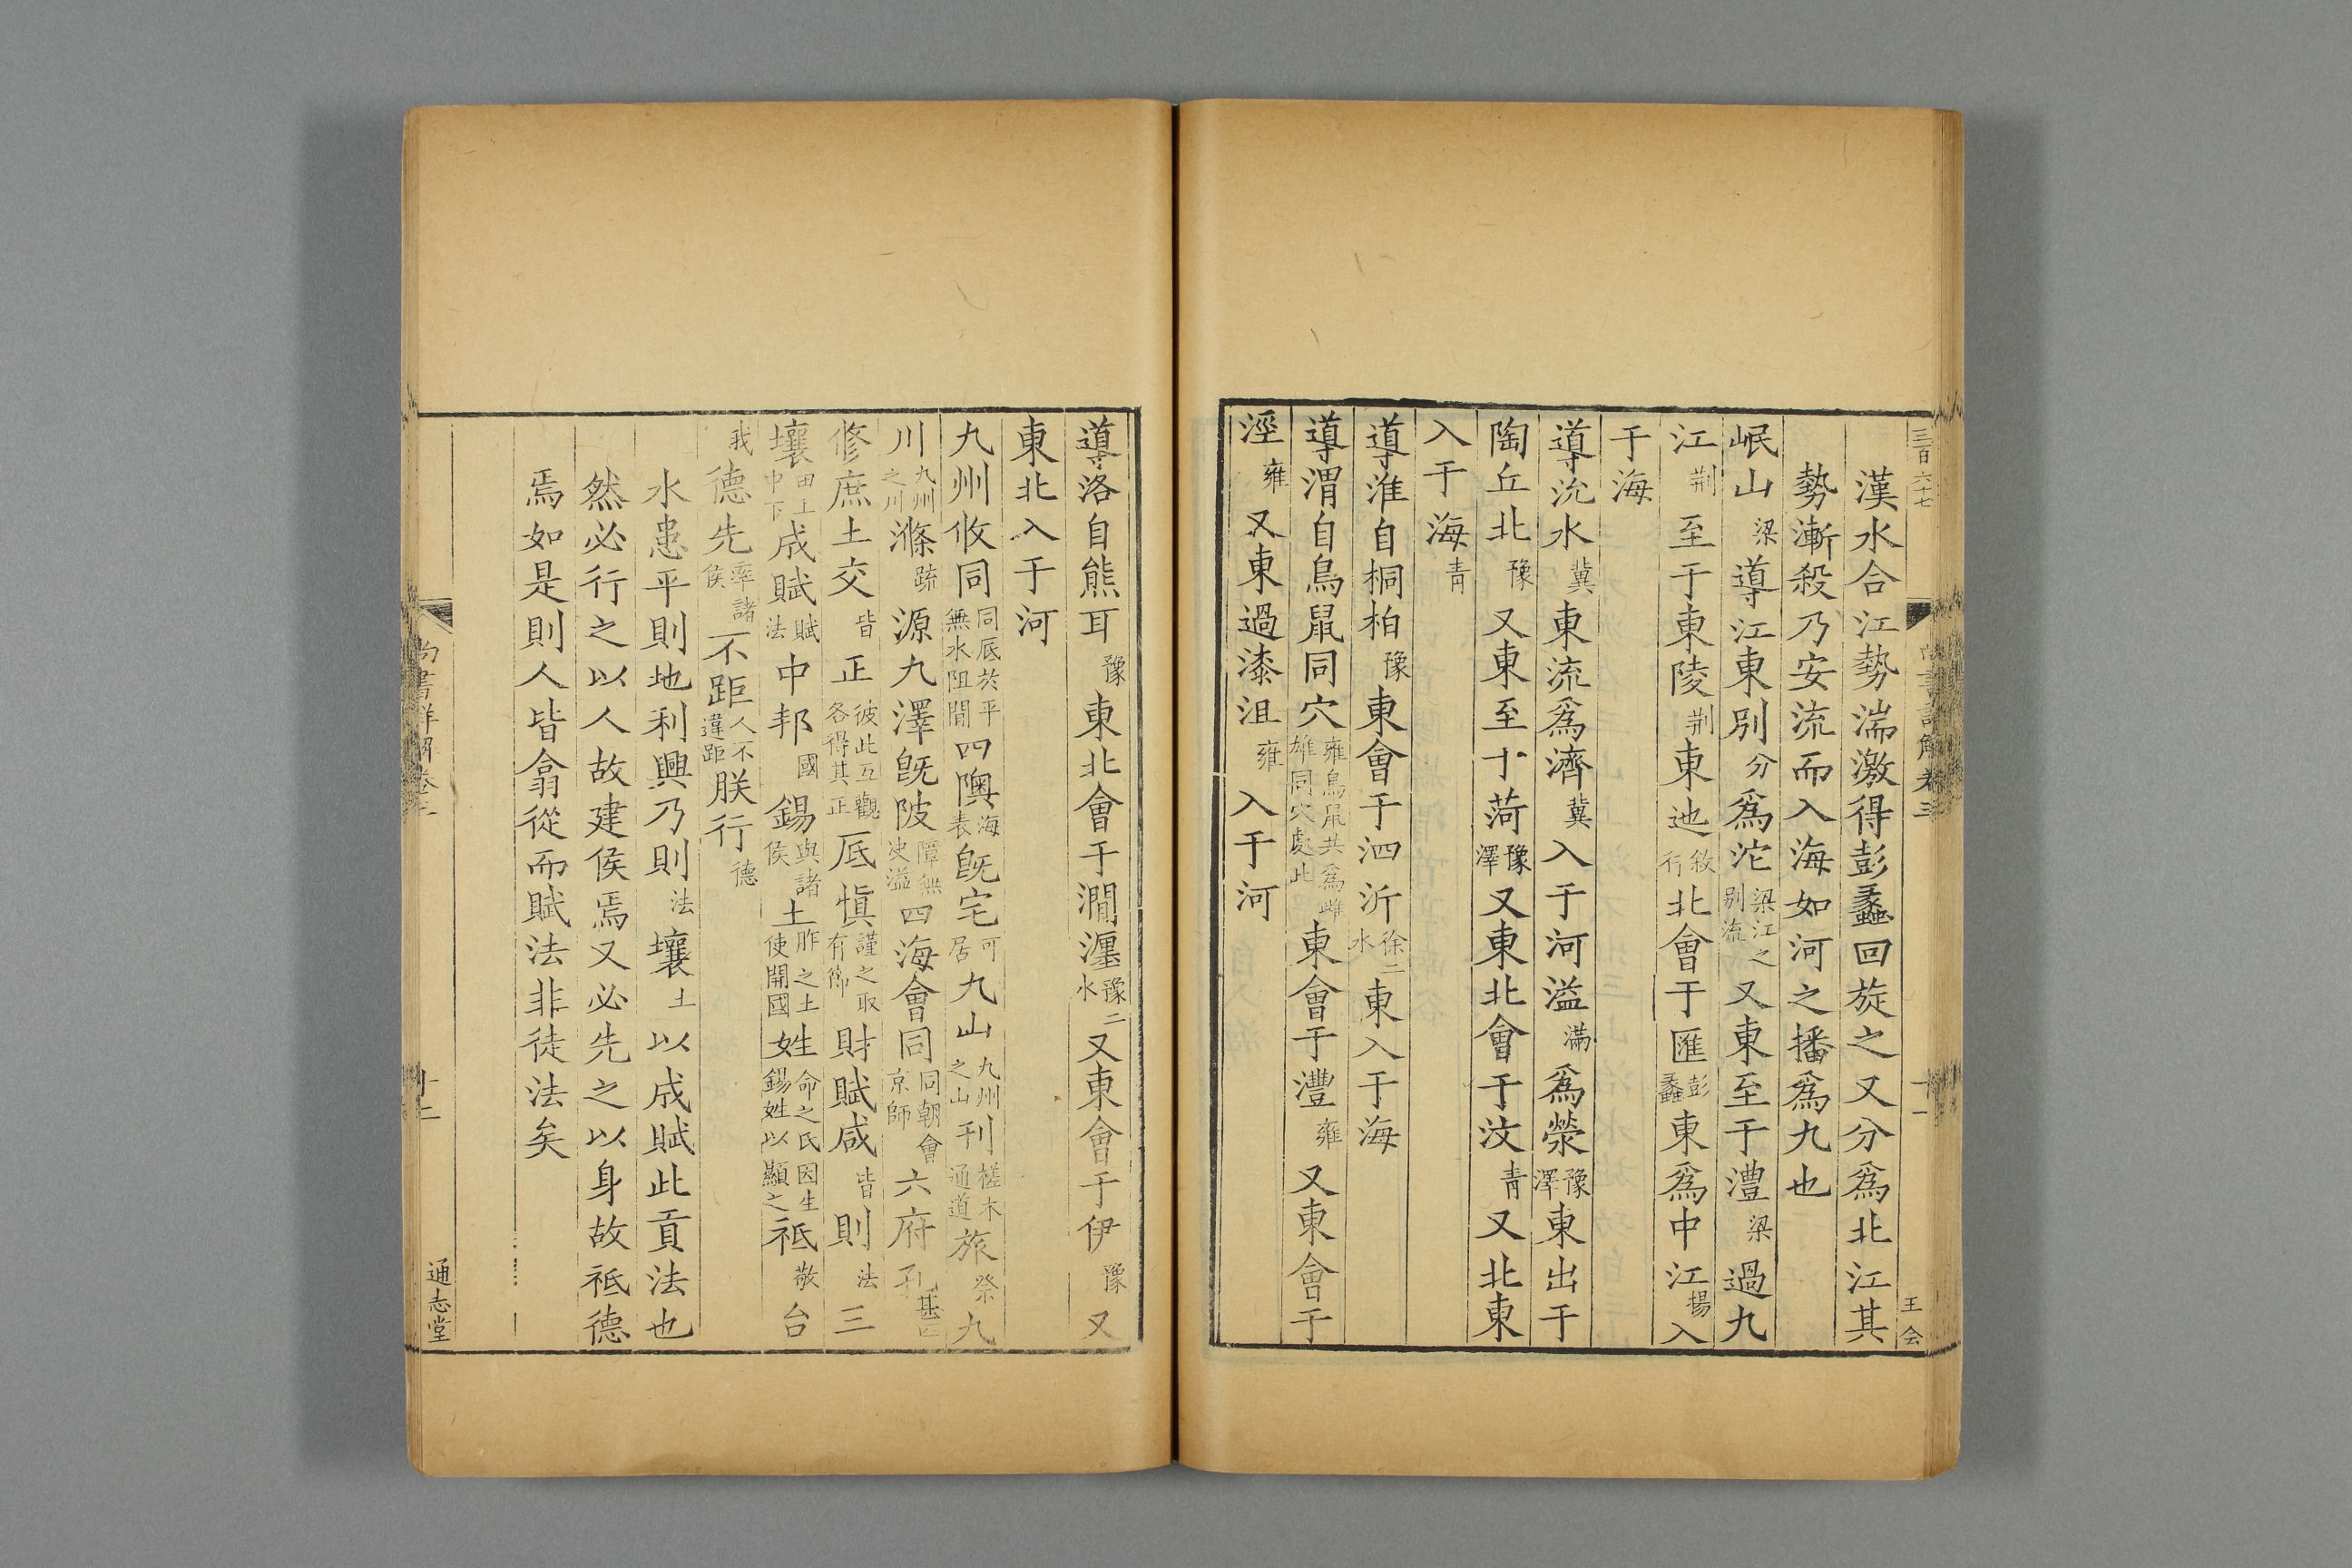 三百六十七
王会
漢水合江勢湍激得彭蠡回旋之又分爲北江其
勢漸殺乃安流而入海如河之播爲九也
岷山梁導江東別分爲沱梁江之別流又東至于澧梁過九
江荆至于東陵荆東迆敘行北會于匯彭蠡東爲中江揚入
于海
導沇水冀東流爲濟冀入于河溢滿爲滎豫澤東出于
陶丘北豫又東至于菏豫澤又東北會于汶青又北東
入于海青
導淮自桐柏豫東會于泗沂徐二水東入于海
導渭自鳥鼠同穴雍鳥鼠共爲雌雄同穴處此東會于灃雍又東會于
涇雍又東過漆沮雍入于河
導洛自熊耳豫東北會于澗瀍豫二水又東會于伊豫又
東北入于河
九州攸同同厎於平無水阻閒四隩海表旣宅可居九山九州之山刊槎木通道旅祭九
川九州之川滌疏源九澤旣陂障無决溢四海會同同朝會京師六府孔甚
修庶土交皆正彼此互觀各得其正厎慎謹之取有節財賦咸皆則法三
壤田上中下成賦賦法中邦國錫與諸侯土胙之土使開國姓命之氏因生錫姓以顯之祗敬台
我德先率諸侯不距人不違距朕行德
水患平則地利興乃則法壤土以成賦此貢法也
然必行之以人故建侯焉又必先之以身故祗德
焉如是則人皆翕從而賦法非徒法矣
尚書詳解卷三
十二
通志堂